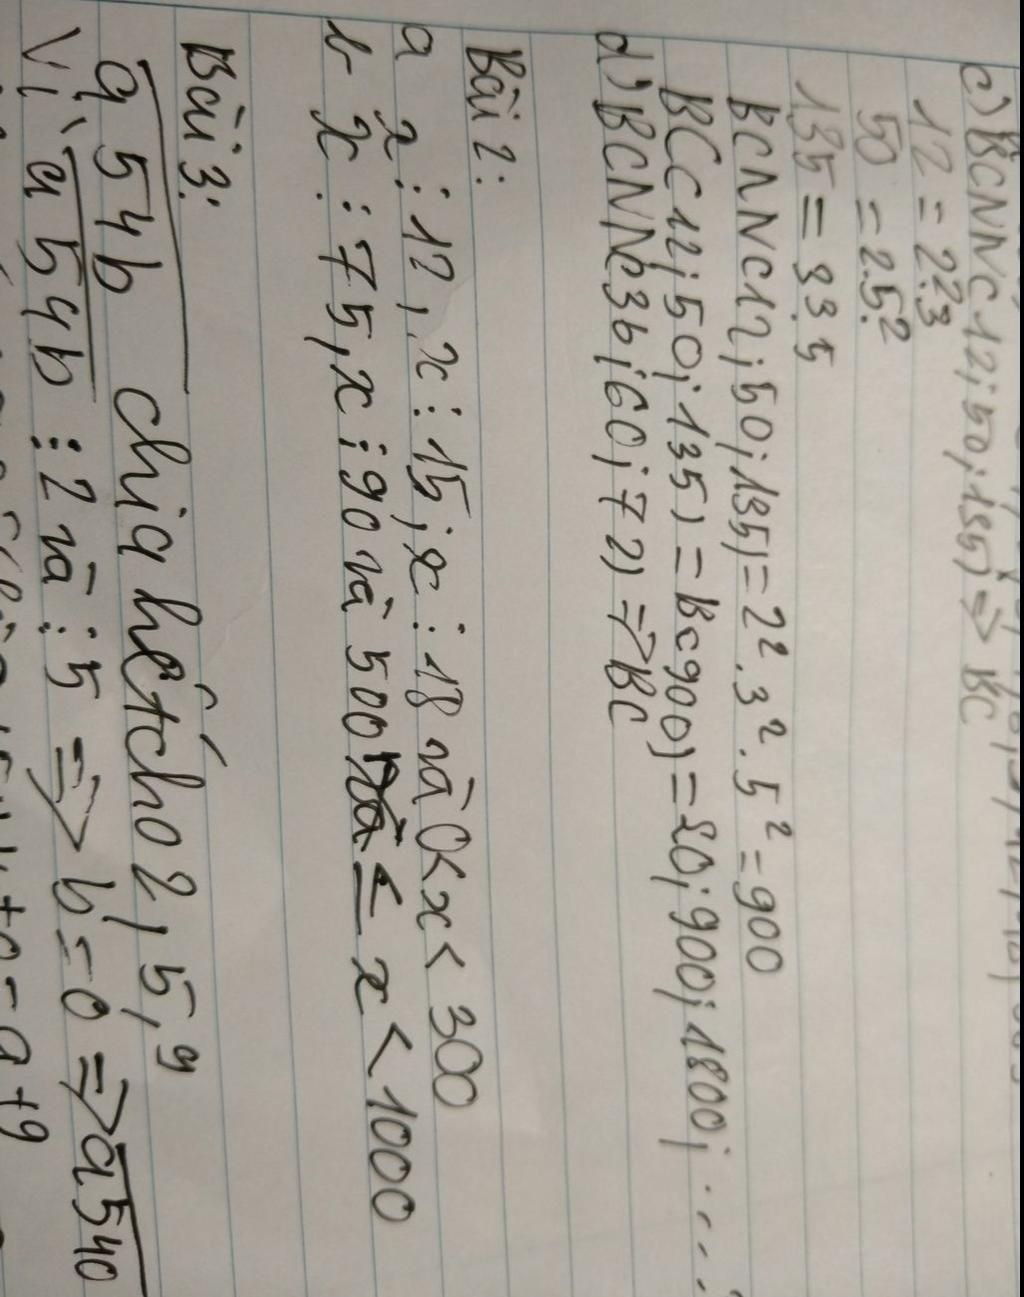 c) BCNNC12;50;135) => BC
12 = 2².3
50 = 2.5²
135 = 3³.5
BCNNC12;50;135) = 2².3².5² = 900
BCC12;50;135) = BC900) = {0;900;1800;....
d) BCNN(36;60;72) => BC
Bài 2:
a x⋮12, x⋮15; x⋮18 và 0<x<300
b x⋮75, x⋮90 và 500 ≤ x < 1000
Bài 3:
a54b chia hết cho 2, 5, 9
Vì a54b ⋮2 và ⋮5 => b=0 => a540
= a+9